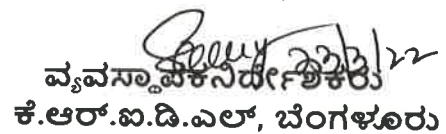 23/3/22
ವ್ಯವಸ್ಥಾಪಕ ನಿರ್ದೇಶಕರು
ಕೆ.ಆರ್.ಐ.ಡಿ.ಎಲ್, ಬೆಂಗಳೂರು